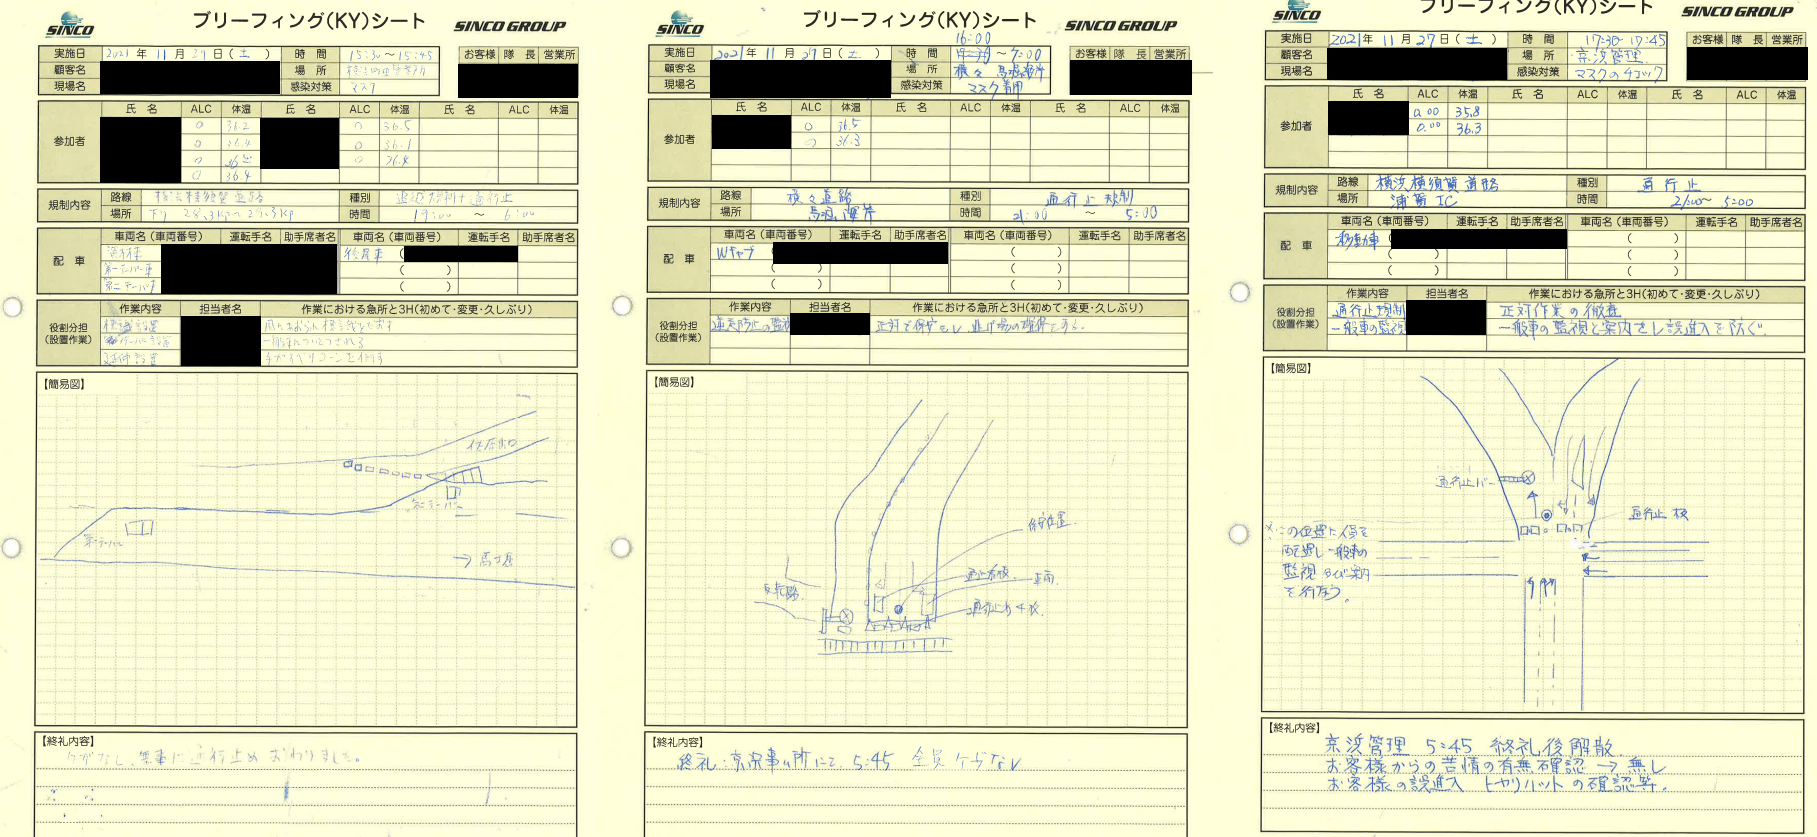 SINCO
ブリーフィング(KY)シート
SINCO GROUP
実施日 2021年 11月 27日(土) 時間 15:30~15:45
お客様 隊長 営業所
顧客名 場所
現場名 感染対策 マスク
参加者 氏名 ALC 体温 氏名 ALC 体温 氏名 ALC 体温
0 36.2 0 36.5
0 36.4 0 36.1
0 0 36.4
0 36.4
規制内容 路線 横浜横須賀道路 種別 通行止
場所 下り 時間 19:00 ~ 6:00
配車 車両名(車両番号) 運転手名 助手席者名 車両名(車両番号) 運転手名 助手席者名
標識車 後尾車 ( )
第一テーパー車 ( )
第二テーパー ( )
役割分担(設置作業) 作業内容 担当者名 作業における急所と3H(初めて・変更・久しぶり)
標識設置
テーパー設置
延伸設置
【簡易図】
出口
第二テーパー
第一テーパー
→ 馬堀
【終礼内容】
ケガなし、無事に通行止めおわりました。
SINCO
ブリーフィング(KY)シート
SINCO GROUP
16:00
実施日 2021年 11月 27日(土) 時間 ~7:00
お客様 隊長 営業所
顧客名 場所 横々 馬堀海岸
現場名 感染対策 マスク着用
参加者 氏名 ALC 体温 氏名 ALC 体温 氏名 ALC 体温
0 36.5
0 36.3
規制内容 路線 横々道路 種別 通行止規制
場所 馬堀海岸 時間 21:00 ~ 5:00
配車 車両名(車両番号) 運転手名 助手席者名 車両名(車両番号) 運転手名 助手席者名
Wキャブ ( )
( ) ( )
( ) ( )
役割分担(設置作業) 作業内容 担当者名 作業における急所と3H(初めて・変更・久しぶり)
逆走防止の監視 正対で保安をし、逃げ場の確保をする。
【簡易図】
保安位置
通止看板 車両
反転路
通行止め4枚
【終礼内容】
終礼:京浜事ム所にて、5:45 全員ケガなし
SINCO
ブリーフィング(KY)シート
SINCO GROUP
実施日 2021年 11月 27日(土) 時間 17:30~17:45
お客様 隊長 営業所
顧客名 場所 京浜管理
現場名 感染対策 マスクのチェック
参加者 氏名 ALC 体温 氏名 ALC 体温 氏名 ALC 体温
0.00 35.8
0.00 36.3
規制内容 路線 横浜横須賀道路 種別 通行止
場所 浦賀IC 時間 21:00~ 5:00
配車 車両名(車両番号) 運転手名 助手席者名 車両名(車両番号) 運転手名 助手席者名
移動車 ( ( )
( ) ( )
( ) ( )
役割分担(設置作業) 作業内容 担当者名 作業における急所と3H(初めて・変更・久しぶり)
通行止規制 正対作業の徹底
一般車の監視 一般車の監視と案内をし誤進入を防ぐ。
【簡易図】
通行止バー
通行止板
※この位置に人員を
配置し一般車の
監視及び案内
を行なう。
【終礼内容】
京浜管理 5:45 終礼後解散
お客様からの苦情の有無確認→無し
お客様の誤進入 ヒヤリハットの確認等。